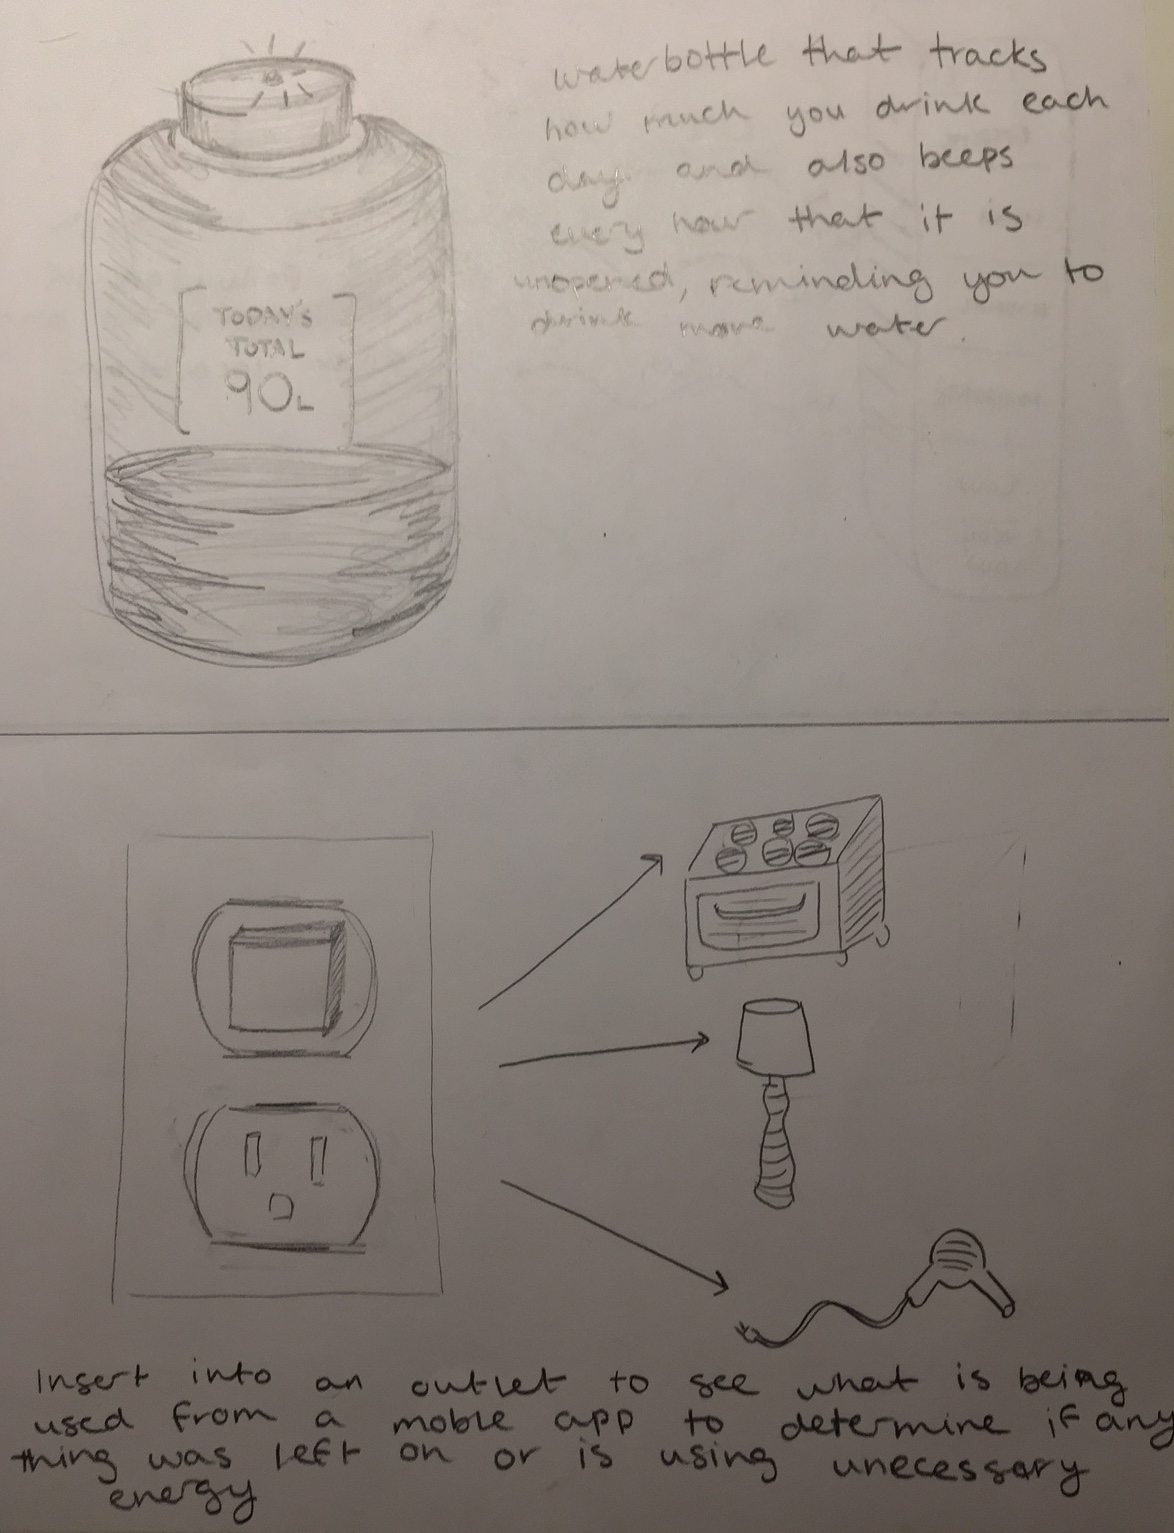 waterbottle that tracks
how much you drink each
day. and also beeps
every hour that it is
unopened, reminding you to
drink more water.
TODAY'S
TOTAL
90L
Insert into an outlet to see what is being
used from a moble app to determine if any
thing was left on or is using unecessary
energy